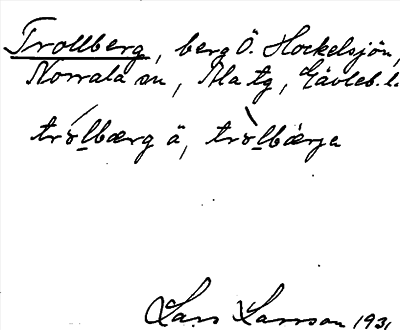 Trollberg, berg Ö. Hockelsjön,
Norrala sn, Ala tg, Gävleb. l.
trolbærg ä, trolbærja
Lars Larsson 1931